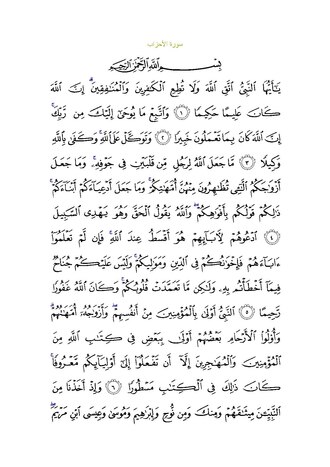 سورة الأحزاب
بِسْمِ ٱللَّهِ ٱلرَّحْمَٰنِ ٱلرَّحِيمِ
يَٰٓأَيُّهَا ٱلنَّبِىُّ ٱتَّقِ ٱللَّهَ وَلَا تُطِعِ ٱلْكَٰفِرِينَ وَٱلْمُنَٰفِقِينَ ۗ إِنَّ ٱللَّهَ
كَانَ عَلِيمًا حَكِيمًا ١ وَٱتَّبِعْ مَا يُوحَىٰٓ إِلَيْكَ مِن رَّبِّكَ ۚ
إِنَّ ٱللَّهَ كَانَ بِمَا تَعْمَلُونَ خَبِيرًا ٢ وَتَوَكَّلْ عَلَى ٱللَّهِ ۚ وَكَفَىٰ بِٱللَّهِ
وَكِيلًا ٣ مَّا جَعَلَ ٱللَّهُ لِرَجُلٍ مِّن قَلْبَيْنِ فِى جَوْفِهِۦ ۚ وَمَا جَعَلَ
أَزْوَٰجَكُمُ ٱلَّٰٓـِٔى تُظَٰهِرُونَ مِنْهُنَّ أُمَّهَٰتِكُمْ ۚ وَمَا جَعَلَ أَدْعِيَآءَكُمْ أَبْنَآءَكُمْ ۚ
ذَٰلِكُمْ قَوْلُكُم بِأَفْوَٰهِكُمْ ۖ وَٱللَّهُ يَقُولُ ٱلْحَقَّ وَهُوَ يَهْدِى ٱلسَّبِيلَ
٤ ٱدْعُوهُمْ لِءَابَآئِهِمْ هُوَ أَقْسَطُ عِندَ ٱللَّهِ ۚ فَإِن لَّمْ تَعْلَمُوٓا۟
ءَابَآءَهُمْ فَإِخْوَٰنُكُمْ فِى ٱلدِّينِ وَمَوَٰلِيكُمْ ۚ وَلَيْسَ عَلَيْكُمْ جُنَاحٌ
فِيمَآ أَخْطَأْتُم بِهِۦ وَلَٰكِن مَّا تَعَمَّدَتْ قُلُوبُكُمْ ۚ وَكَانَ ٱللَّهُ غَفُورًا
رَّحِيمًا ٥ ٱلنَّبِىُّ أَوْلَىٰ بِٱلْمُؤْمِنِينَ مِنْ أَنفُسِهِمْ ۖ وَأَزْوَٰجُهُۥٓ أُمَّهَٰتُهُمْ ۗ
وَأُو۟لُوا۟ ٱلْأَرْحَامِ بَعْضُهُمْ أَوْلَىٰ بِبَعْضٍ فِى كِتَٰبِ ٱللَّهِ مِنَ
ٱلْمُؤْمِنِينَ وَٱلْمُهَٰجِرِينَ إِلَّآ أَن تَفْعَلُوٓا۟ إِلَىٰٓ أَوْلِيَآئِكُم مَّعْرُوفًا ۚ
كَانَ ذَٰلِكَ فِى ٱلْكِتَٰبِ مَسْطُورًا ٦ وَإِذْ أَخَذْنَا مِنَ
ٱلنَّبِيِّۦنَ مِيثَٰقَهُمْ وَمِنكَ وَمِن نُّوحٍ وَإِبْرَٰهِيمَ وَمُوسَىٰ وَعِيسَى ٱبْنِ مَرْيَمَ ۖ